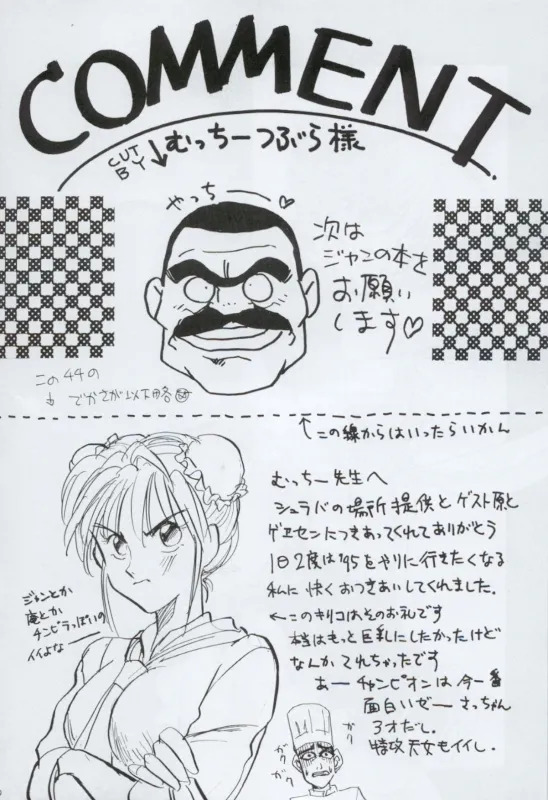 COMMENT
CUT BY
むっちーつぶら様
やっちー♡
次は
ジャンの本を
お願い
します♡
この44の
でかさが以下略
↑この線からはいったらいかん
むっちー先生へ
シュラバの場所提供とゲスト原と
ゲヱセンにつきあってくれてありがとう
1日2度は'95をやりに行きたくなる
私に快くおつきあいしてくれました。
←このキリコはそのお礼です
本当はもっと巨乳にしたかったけど
なんかてれちゃったです
あーチャンピオンは今一番
面白いゼー さっちゃん
3才だし。
特攻天女もイイし.
ジャンとか
庵とか
チンピラっぽいの
イイよなー
ガク
ガク
ガク